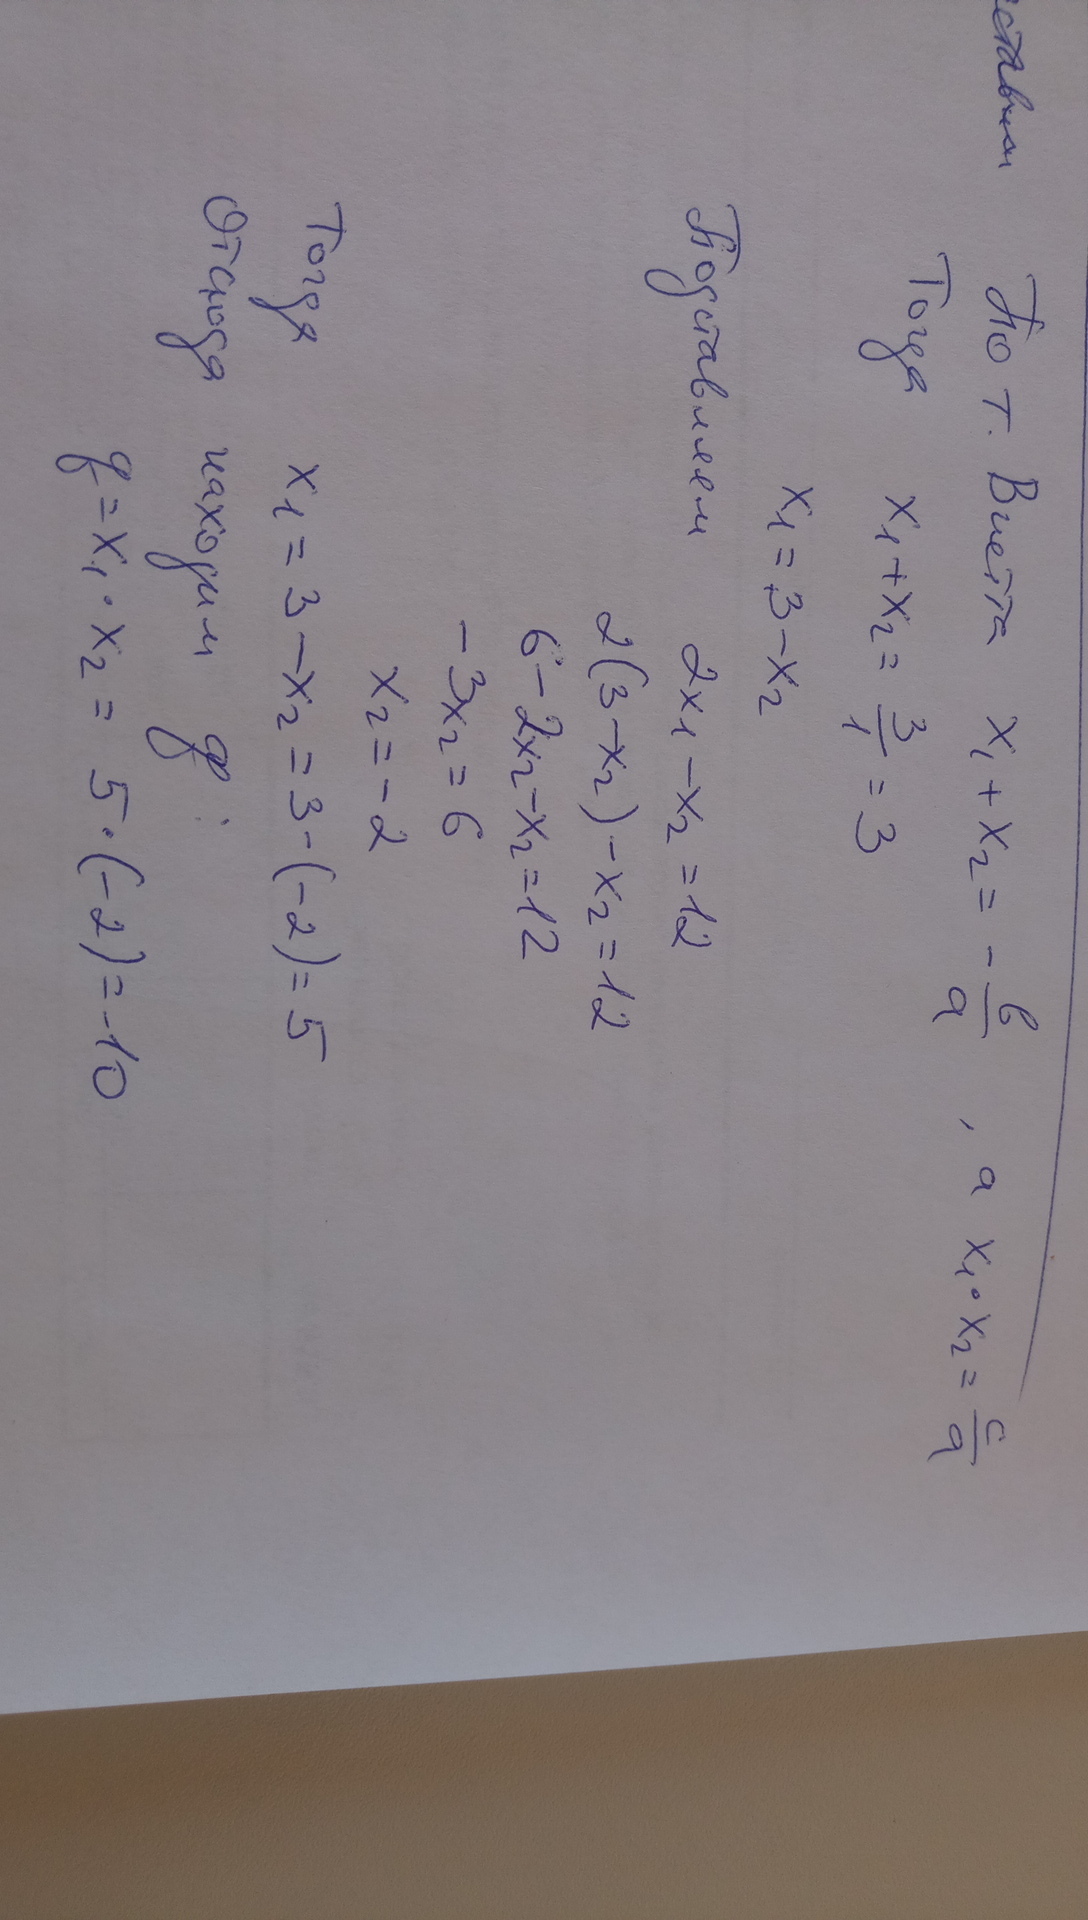 По т. Виетта x₁ + x₂ = - b/a , а x₁ • x₂ = c/a
Тогда x₁ + x₂ = 3/1 = 3
x₁ = 3 - x₂
Подставляем 2x₁ - x₂ = 12
2(3 - x₂) - x₂ = 12
6 - 2x₂ - x₂ = 12
-3x₂ = 6
x₂ = -2
Тогда x₁ = 3 - x₂ = 3 - (-2) = 5
Отсюда находим q:
q = x₁ • x₂ = 5 • (-2) = -10